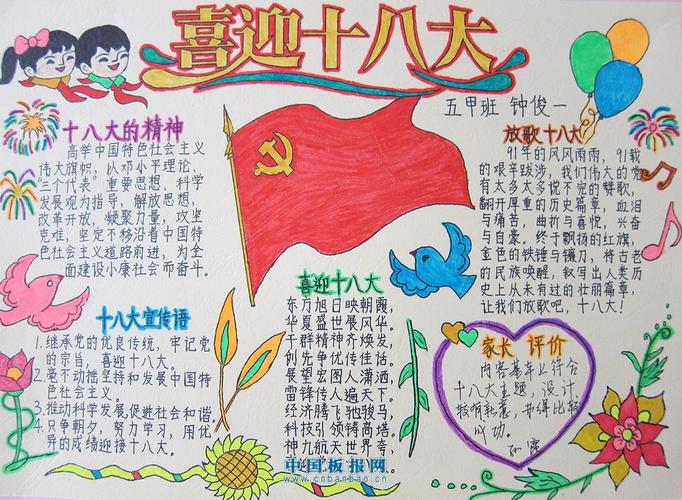 喜迎十八大
五甲班 钟俊一
十八大的精神
高举中国特色社会主义
伟大旗帜，以邓小平理论，
三个代表，重要思想，科学
发展观为指导，解放思想，
改革开放，凝聚力量，攻坚
克难，坚定不移沿着中国特
色社会主义道路前进，为全
面建设小康社会而奋斗。
放歌十八大
91年的风风雨雨，91载
的艰辛跋涉，我们伟大的党
有太多太多说不完的赞歌，
翻开厚重的历史篇章，血泪
与痛苦，曲折与喜悦，兴奋
与自豪。终于飘扬的红旗，
金色的铁锤与镰刀，将古老
的民族唤醒，叙写出人类历
史上从未有过的壮丽篇章，
让我们放歌吧，十八大！
十八大宣传语
1.继承党的优良传统，牢记党
的宗旨，喜迎十八大。
2.毫不动摇坚持和发展中国特
色社会主义。
3.推动科学发展，促进社会和谐。
4.只争朝夕，努力学习，用优
异的成绩迎接十八大。
喜迎十八大
东方旭日映朝霞，
华夏盛世展风华。
干群精神齐焕发，
创先争优传佳话。
展望宏图人潇洒，
雷锋传人遍天下。
经济腾飞驰骏马，
科技引领铸高塔。
神九航天世界夸，
家长 评价
内容基本上符合
十八大主题，设计
较有新意，
比较
成功。
中国板报网
www.cnbanbao.cn